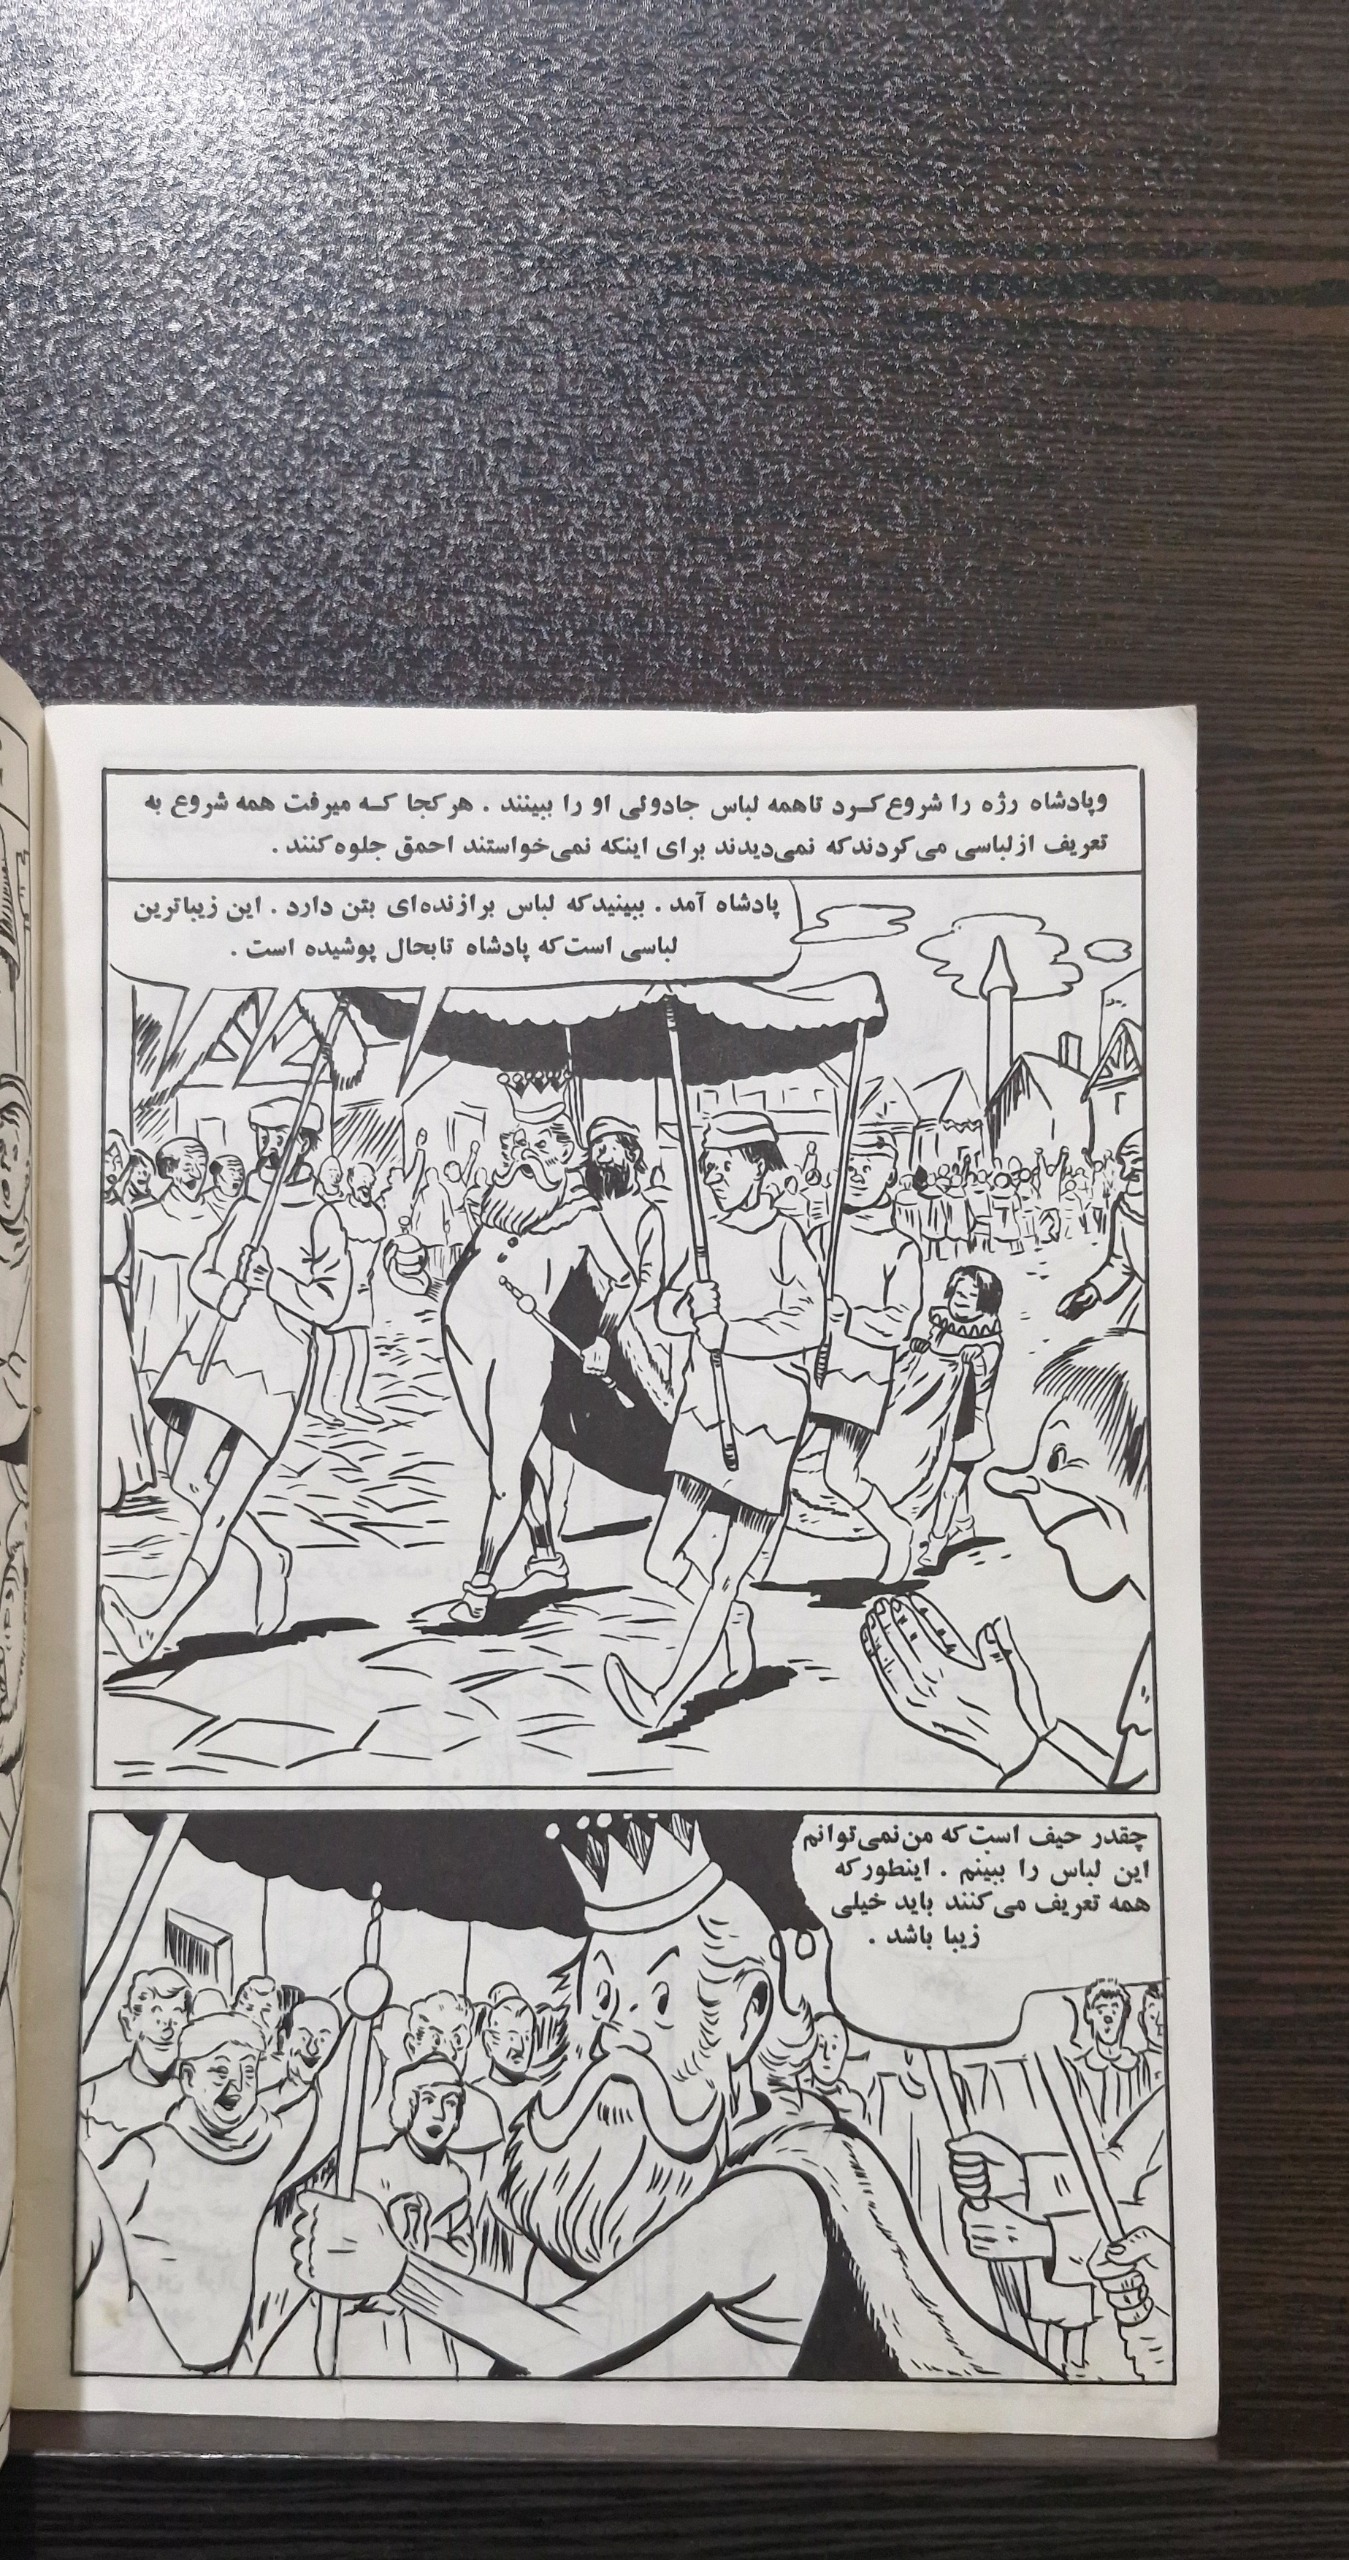 وپادشاه رژه را شروع کرد تاهمه لباس جادوئی او را ببینند . هرکجا که میرفت همه شروع به
تعریف ازلباسی می‌کردندکه نمی‌دیدند برای اینکه نمی‌خواستند احمق جلوه‌کنند .
پادشاه آمد . ببینیدکه لباس برازنده‌ای بتن دارد . این زیباترین
لباسی است‌که پادشاه تابحال پوشیده است .
چقدر حیف است‌که من‌نمی‌توانم
این لباس را ببینم . اینطورکه
همه تعریف می‌کنند باید خیلی
زیبا باشد .